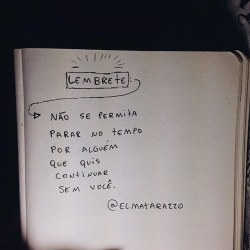 LEMBRETE:
NÃO SE PERMITA
PARAR NO TEMPO
POR ALGUÉM
QUE QUIS
CONTINUAR
SEM VOCÊ.
@ELMATARAZZO